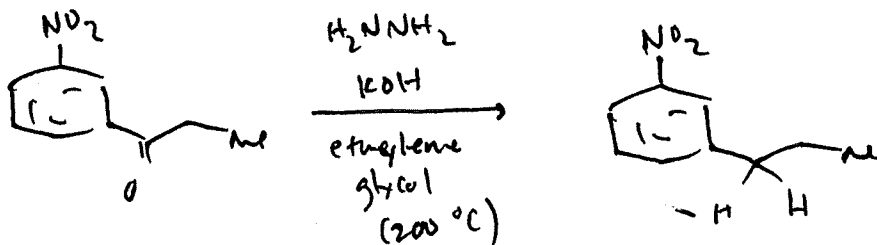 NO2
H2NNH2
KOH
ethylene
glycol
(200 °C)
Me
O
NO2
Me
H H